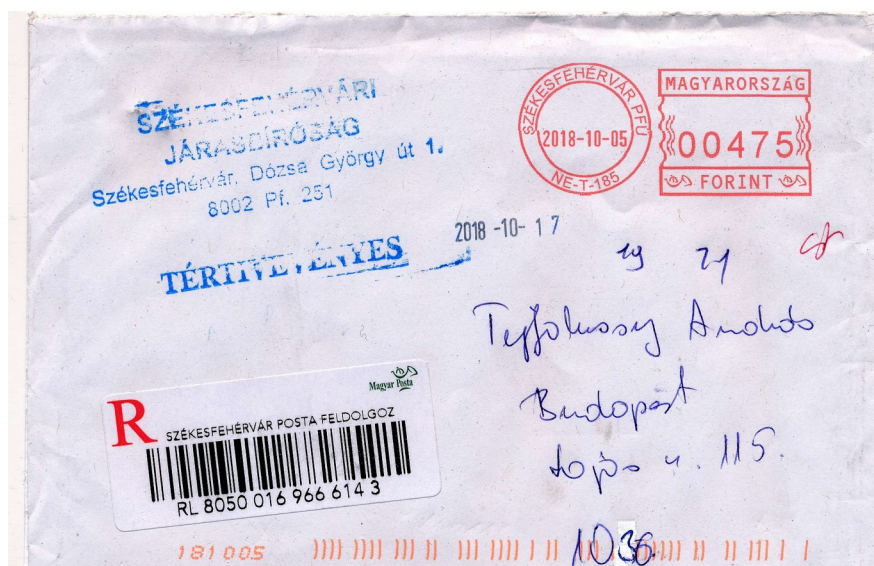 SZÉKESFEHÉRVÁRI
JÁRÁSBÍRÓSÁG
Székesfehérvár, Dózsa György út 1.
8002 Pf. 251
SZÉKESFEHÉRVÁR PFÜ
2018-10-05
NE-T-185
MAGYARORSZÁG
00475
FORINT
2018 -10- 17
TÉRTIVEVÉNYES
19 21
András
Budapest
Lajos u. 115.
1036
Magyar Posta
R
SZÉKESFEHÉRVÁR POSTA FELDOLGOZ
RL 8050 016 966 614 3
181005